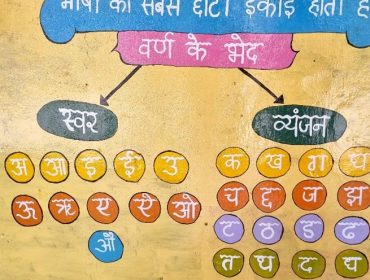 भाषा की सबसे छोटी इकाई होती है
वर्ण के भेद
स्वर व्यंजन
अ आ इ ई उ क ख ग घ
ऊ ऋ ए ऐ ओ च छ ज झ
औ ट ठ ड ढ
त थ द ध